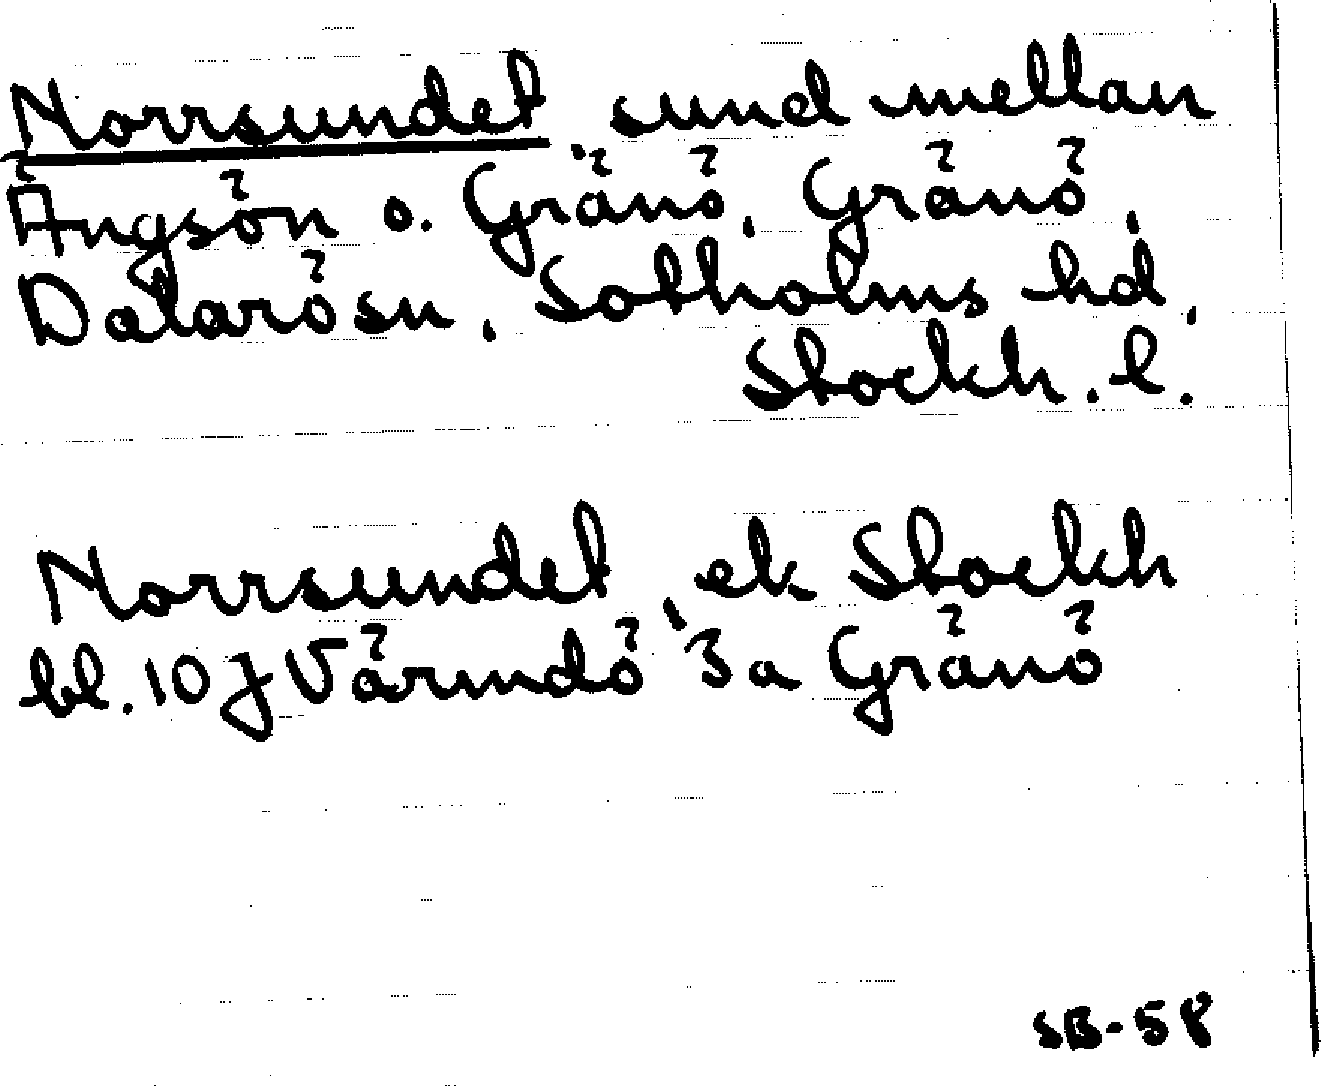 Norrsundet sund mellan
Ängsön o. Gränö, Gränö,
Dalarö sn, Sotholms hd,
Stockh. l.
Norrsundet, ek Stockh
bl. 10 J Värmdö 3a Gränö
SB-58